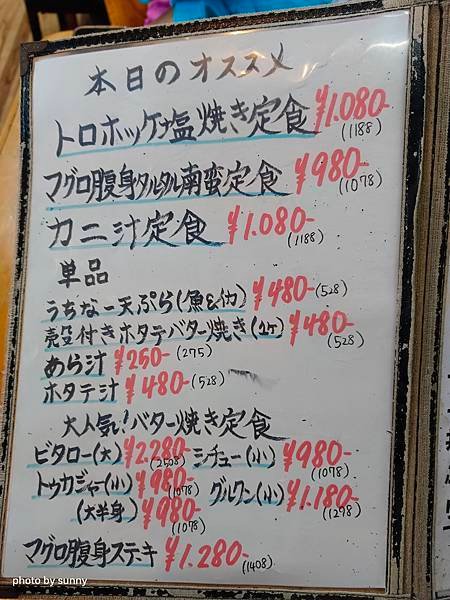 本日のオススメ
トロホッケ塩焼き定食 ¥1.080-
(1188)
マグロ腹身タルタル南蛮定食 ¥980-
(1078)
カニ汁定食 ¥1.080-
(1188)
単品
うちなー天ぷら(魚&他) ¥480- (528)
殻付きホタテバター焼き(1ケ) ¥480-
(528)
あら汁 ¥250- (275)
ホタテ汁 ¥480- (528)
大人気!バター焼き定食
ビタロー(大) ¥2.280- シチュー(小) ¥980-
(2508) (1078)
トゥカジャー(小) ¥980- グルクン(小) ¥1.180-
(1078) (1298)
(大半身) ¥980-
(1078)
マグロ腹身ステキ ¥1.280-
(1408)
photo by sunny